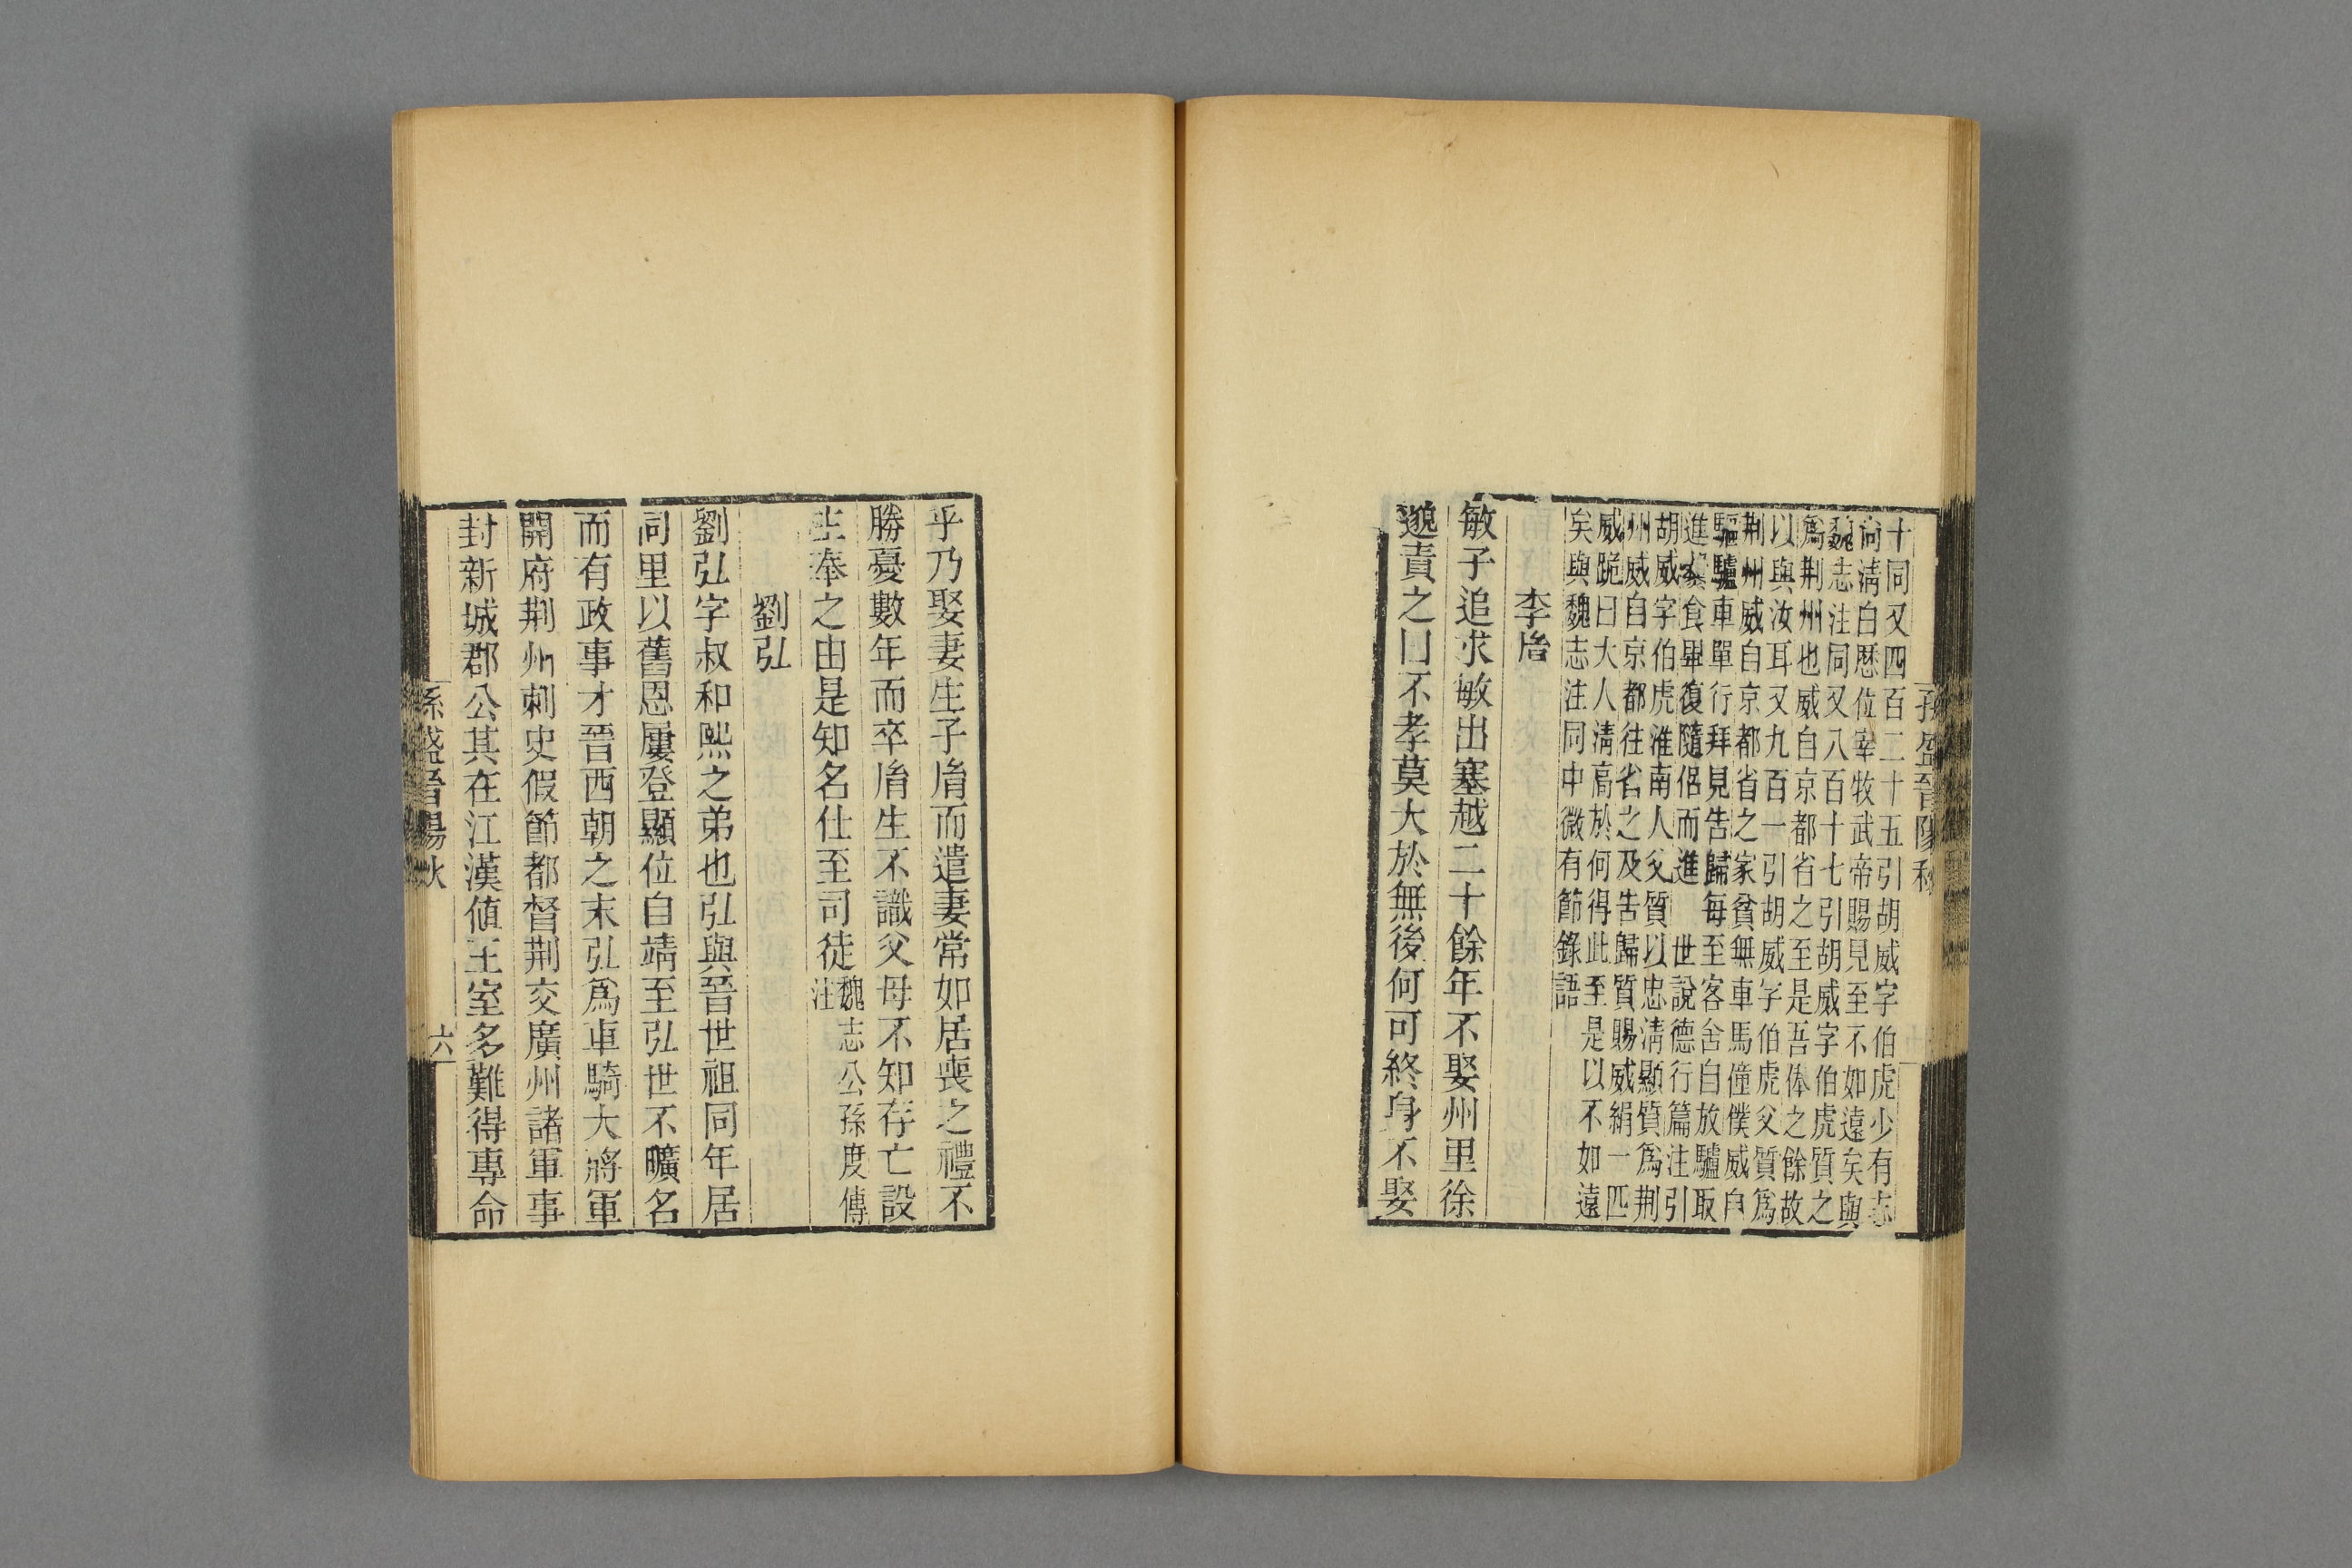 孫盛晉陽秋
十同又四百二十五引胡威字伯虎少有志
尚清白歷位宰牧武帝賜見至不如遠矣與
魏志注同又八百十七引胡威字伯虎質之
爲荆州也威自京都省之至是吾俸之餘故
以與汝耳又九百一引胡威字伯虎父質爲
荆州威自京都省之家貧無車馬僮僕威自
驅驢車單行拜見告歸每至客舍自放驢取
進爨食畢復隨侶而進　世說德行篇注引
胡威字伯虎淮南人父質以忠清顯質爲荆
州威自京都往省之及告歸質賜威絹一匹
威跪曰大人清高於何得此至是以不如遠
矣與魏志注同中微有節錄語
李胤
敏子追求敏出塞越二十餘年不娶州里徐
邈責之曰不孝莫大於無後何可終身不娶
乎乃娶妻生子胤而遣妻常如居喪之禮不
勝憂數年而卒胤生不識父母不知存亡設
主奉之由是知名仕至司徒魏志公孫度傳注
劉弘
劉弘字叔和熙之弟也弘與晉世祖同年居
同里以舊恩屢登顯位自靖至弘世不曠名
而有政事才晉西朝之末弘爲車騎大將軍
開府荆州刺史假節都督荆交廣州諸軍事
封新城郡公其在江漢値王室多難得專命
孫盛晉陽秋
六